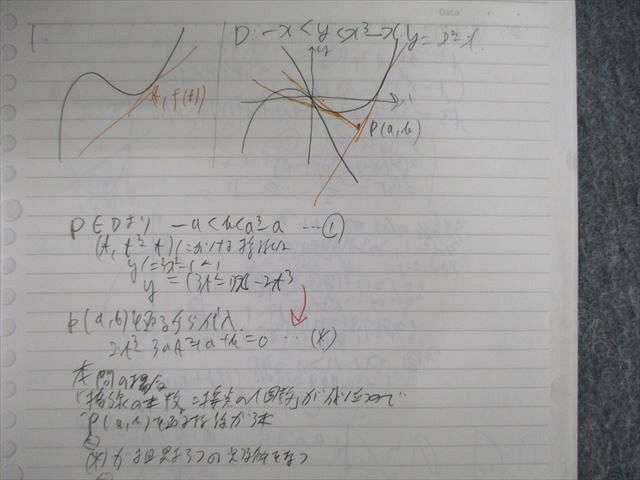 1.
D: -x < y < x³-x
y = x³-x
y
(t, f(t))
P(a,b)
P∈Dより -a<b<a³-a …①
(t, t³-t)における接線は
y'=3x²-1より
y = (3t²-1)x-2t³
P(a,b)を通るから代入
2t³-3at²+a+b=0 … (*)
本問の場合
「接線の本数=接点の個数」が成り立つので
P(a,b)を通る接線が3本
(*)が相異なる3つの実数解をもつ